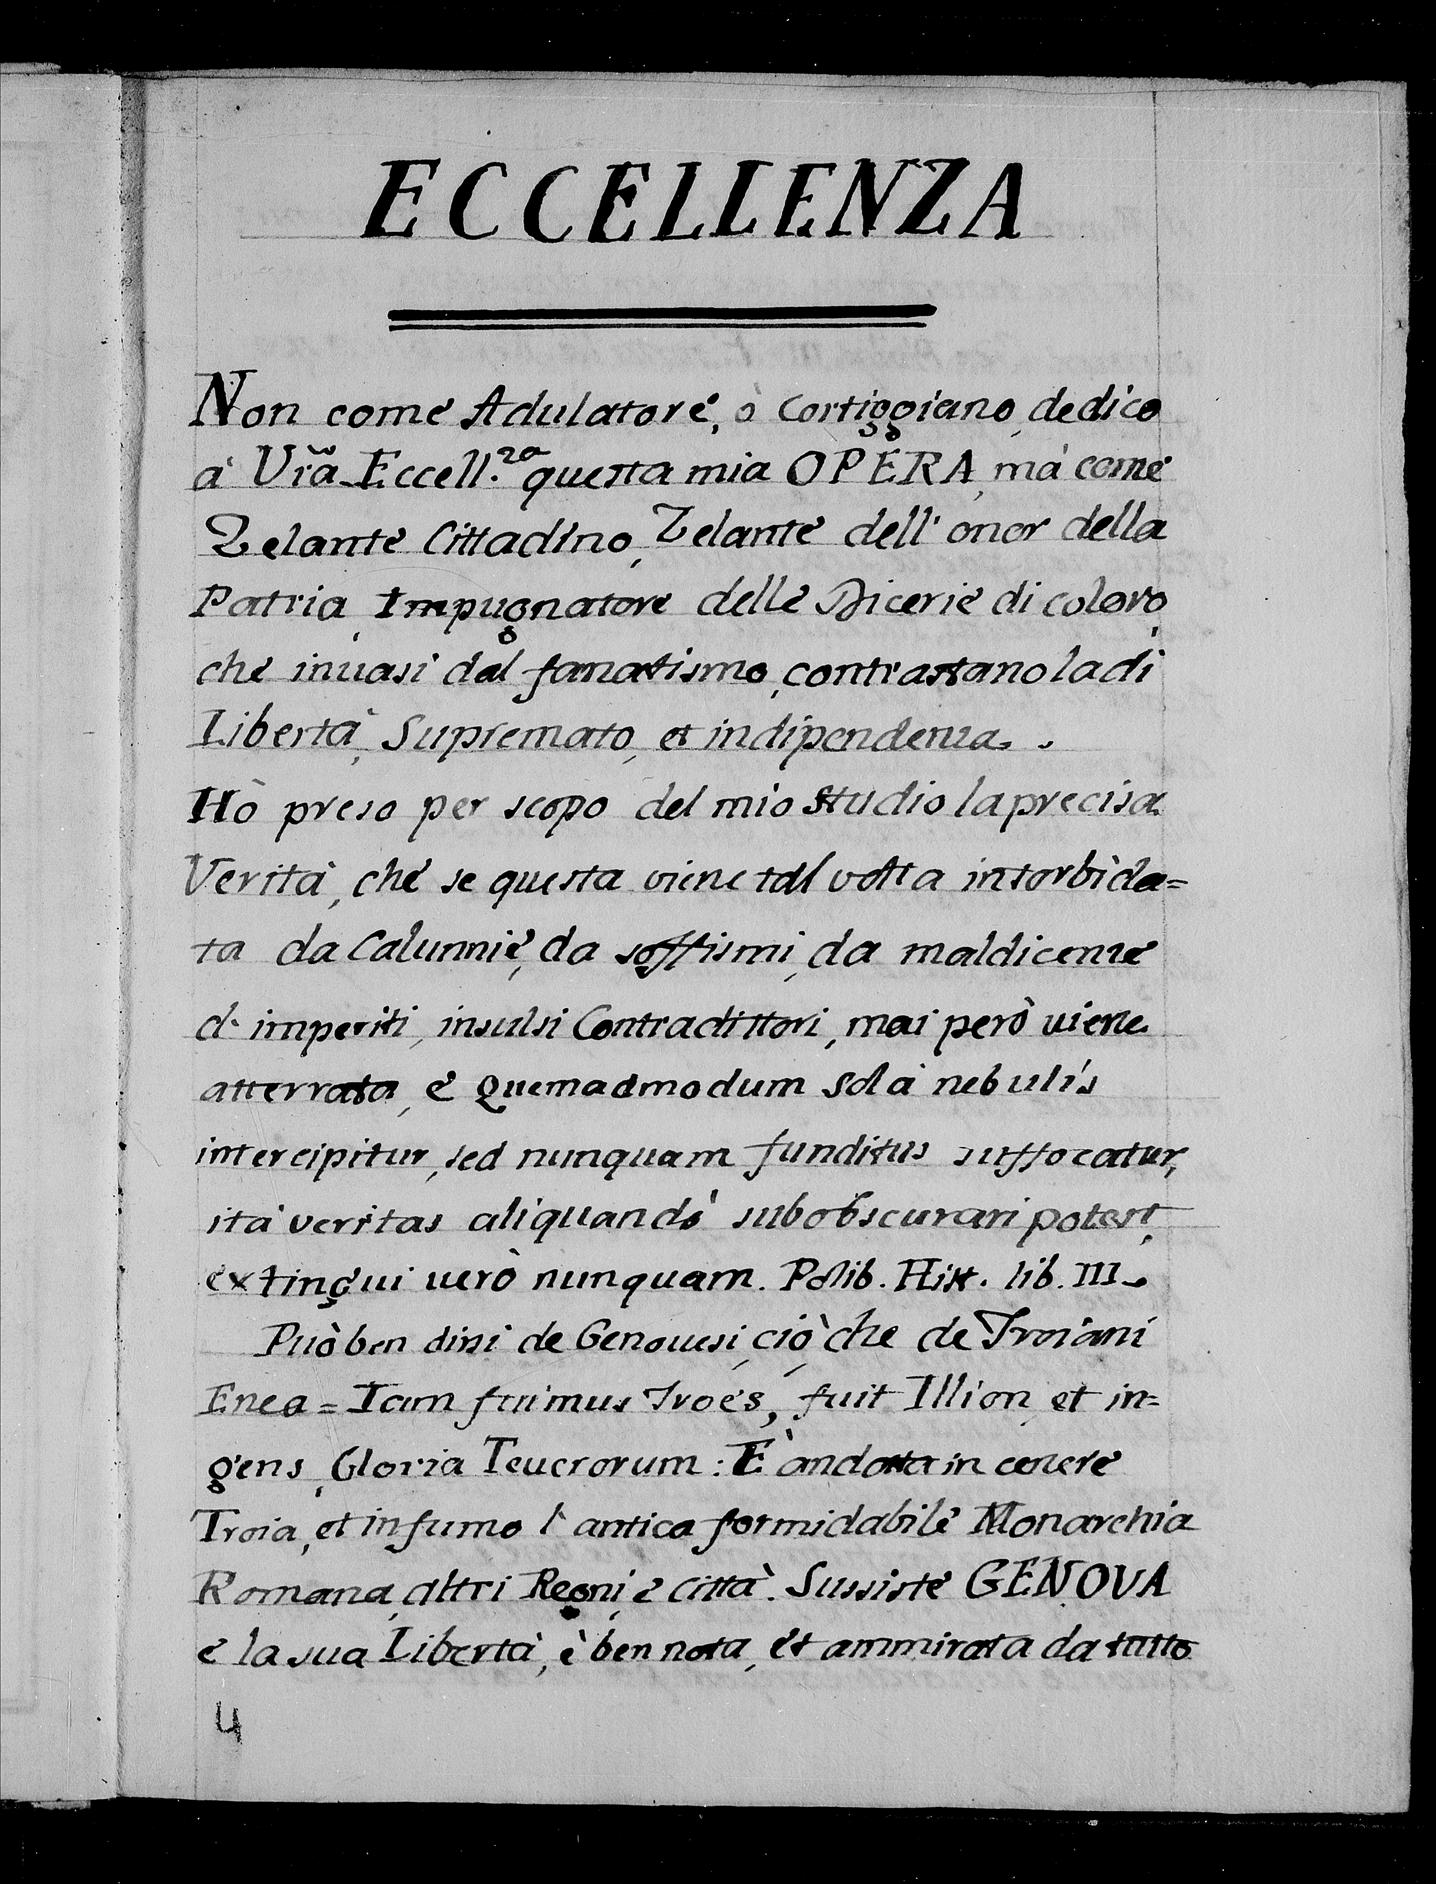 ECCELLENZA
Non come Adulatore, ò Cortiggiano, dedico
à Vrã Eccell.za questa mia OPERA, mà come
Zelante Cittadino, Zelante dell' onor della
Patria, Impugnatore delle Dicerie di coloro,
che inuasi dal fanatismo, contrastano la di
Libertà, Supremato, et indipendenza.
Hò preso per scopo del mio studio la precisa
Verità, che se questa viene tal volta intorbida=
ta da Calunnie, da soffismi, da maldicenze
d' imperiti, insulsi Contradittori, mai però uiene
atterrata, e Quemadmodum Sol à nebulis
intercipitur, sed nunquam funditus suffocatur,
ità veritas aliquandò subobscurari potest,
extingui uerò nunquam. Polib. Hist. lib. III.
Può ben dirsi de Genouesi, ciò che de Troiani
Enea = Iam fuimus Troes, fuit Illion, et in=
gens, Gloria Teucrorum: È andata in cenere
Troia, et in fumo l' antica formidabile Monarchia
Romana, altri Regni, e Città. Sussiste GENOVA
e la sua Libertà, è ben nota, et ammirata da tutto
4